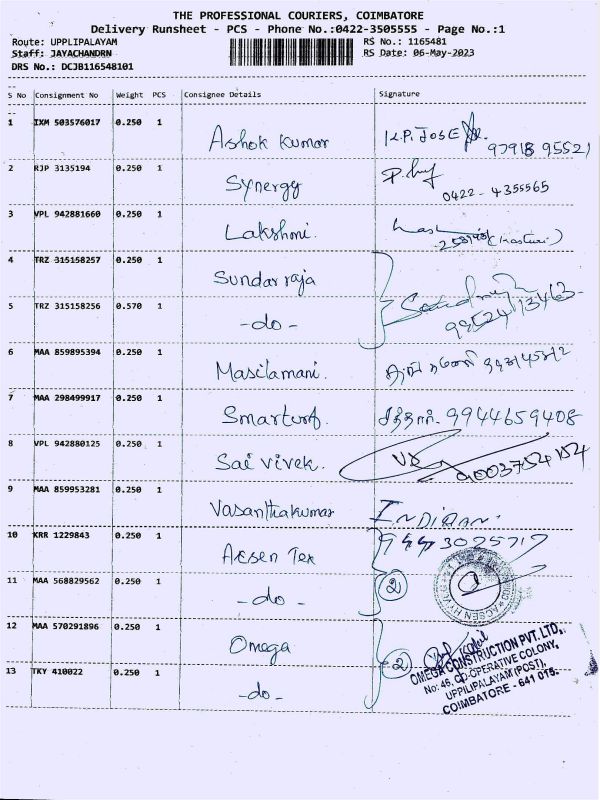 THE PROFESSIONAL COURIERS, COIMBATORE
Delivery Runsheet - PCS - Phone No.:0422-3505555 - Page No.:1
Route: UPPLIPALAYAM RS No.: 1165481
Staff: JAYACHANDRN RS Date: 06-May-2023
DRS No.: DCJB116548101
S No Consignment No Weight PCS Consignee Details Signature
1 IXM 503576017 0.250 1 Ashok Kumar K.P. JOSE 97918 95521
2 RJP 3135194 0.250 1 Synergy 0422 - 4355565
3 VPL 942881660 0.250 1 Lakshmi. (Kasturi)
4 TRZ 315158257 0.250 1 Sundar raja
5 TRZ 315158256 0.570 1 - do -
6 MAA 859895394 0.250 1 Masilamani.
7 MAA 298499917 0.250 1 Smarturf. 9944659408
8 VPL 942880125 0.250 1 Sai Vivek.
9 MAA 859953281 0.250 1 Vasanthakumar INDIRAN.
10 KRR 1229843 0.250 1 Acsen Tex
11 MAA 568829562 0.250 1 - do - 2
12 MAA 570291896 0.250 1 Omega
13 TKY 410022 0.250 1 - do - 2
OMEGA CONSTRUCTION PVT. LTD.,
No: 46, CO-OPERATIVE COLONY,
UPPILIPALAYAM (POST),
COIMBATORE - 641 015.